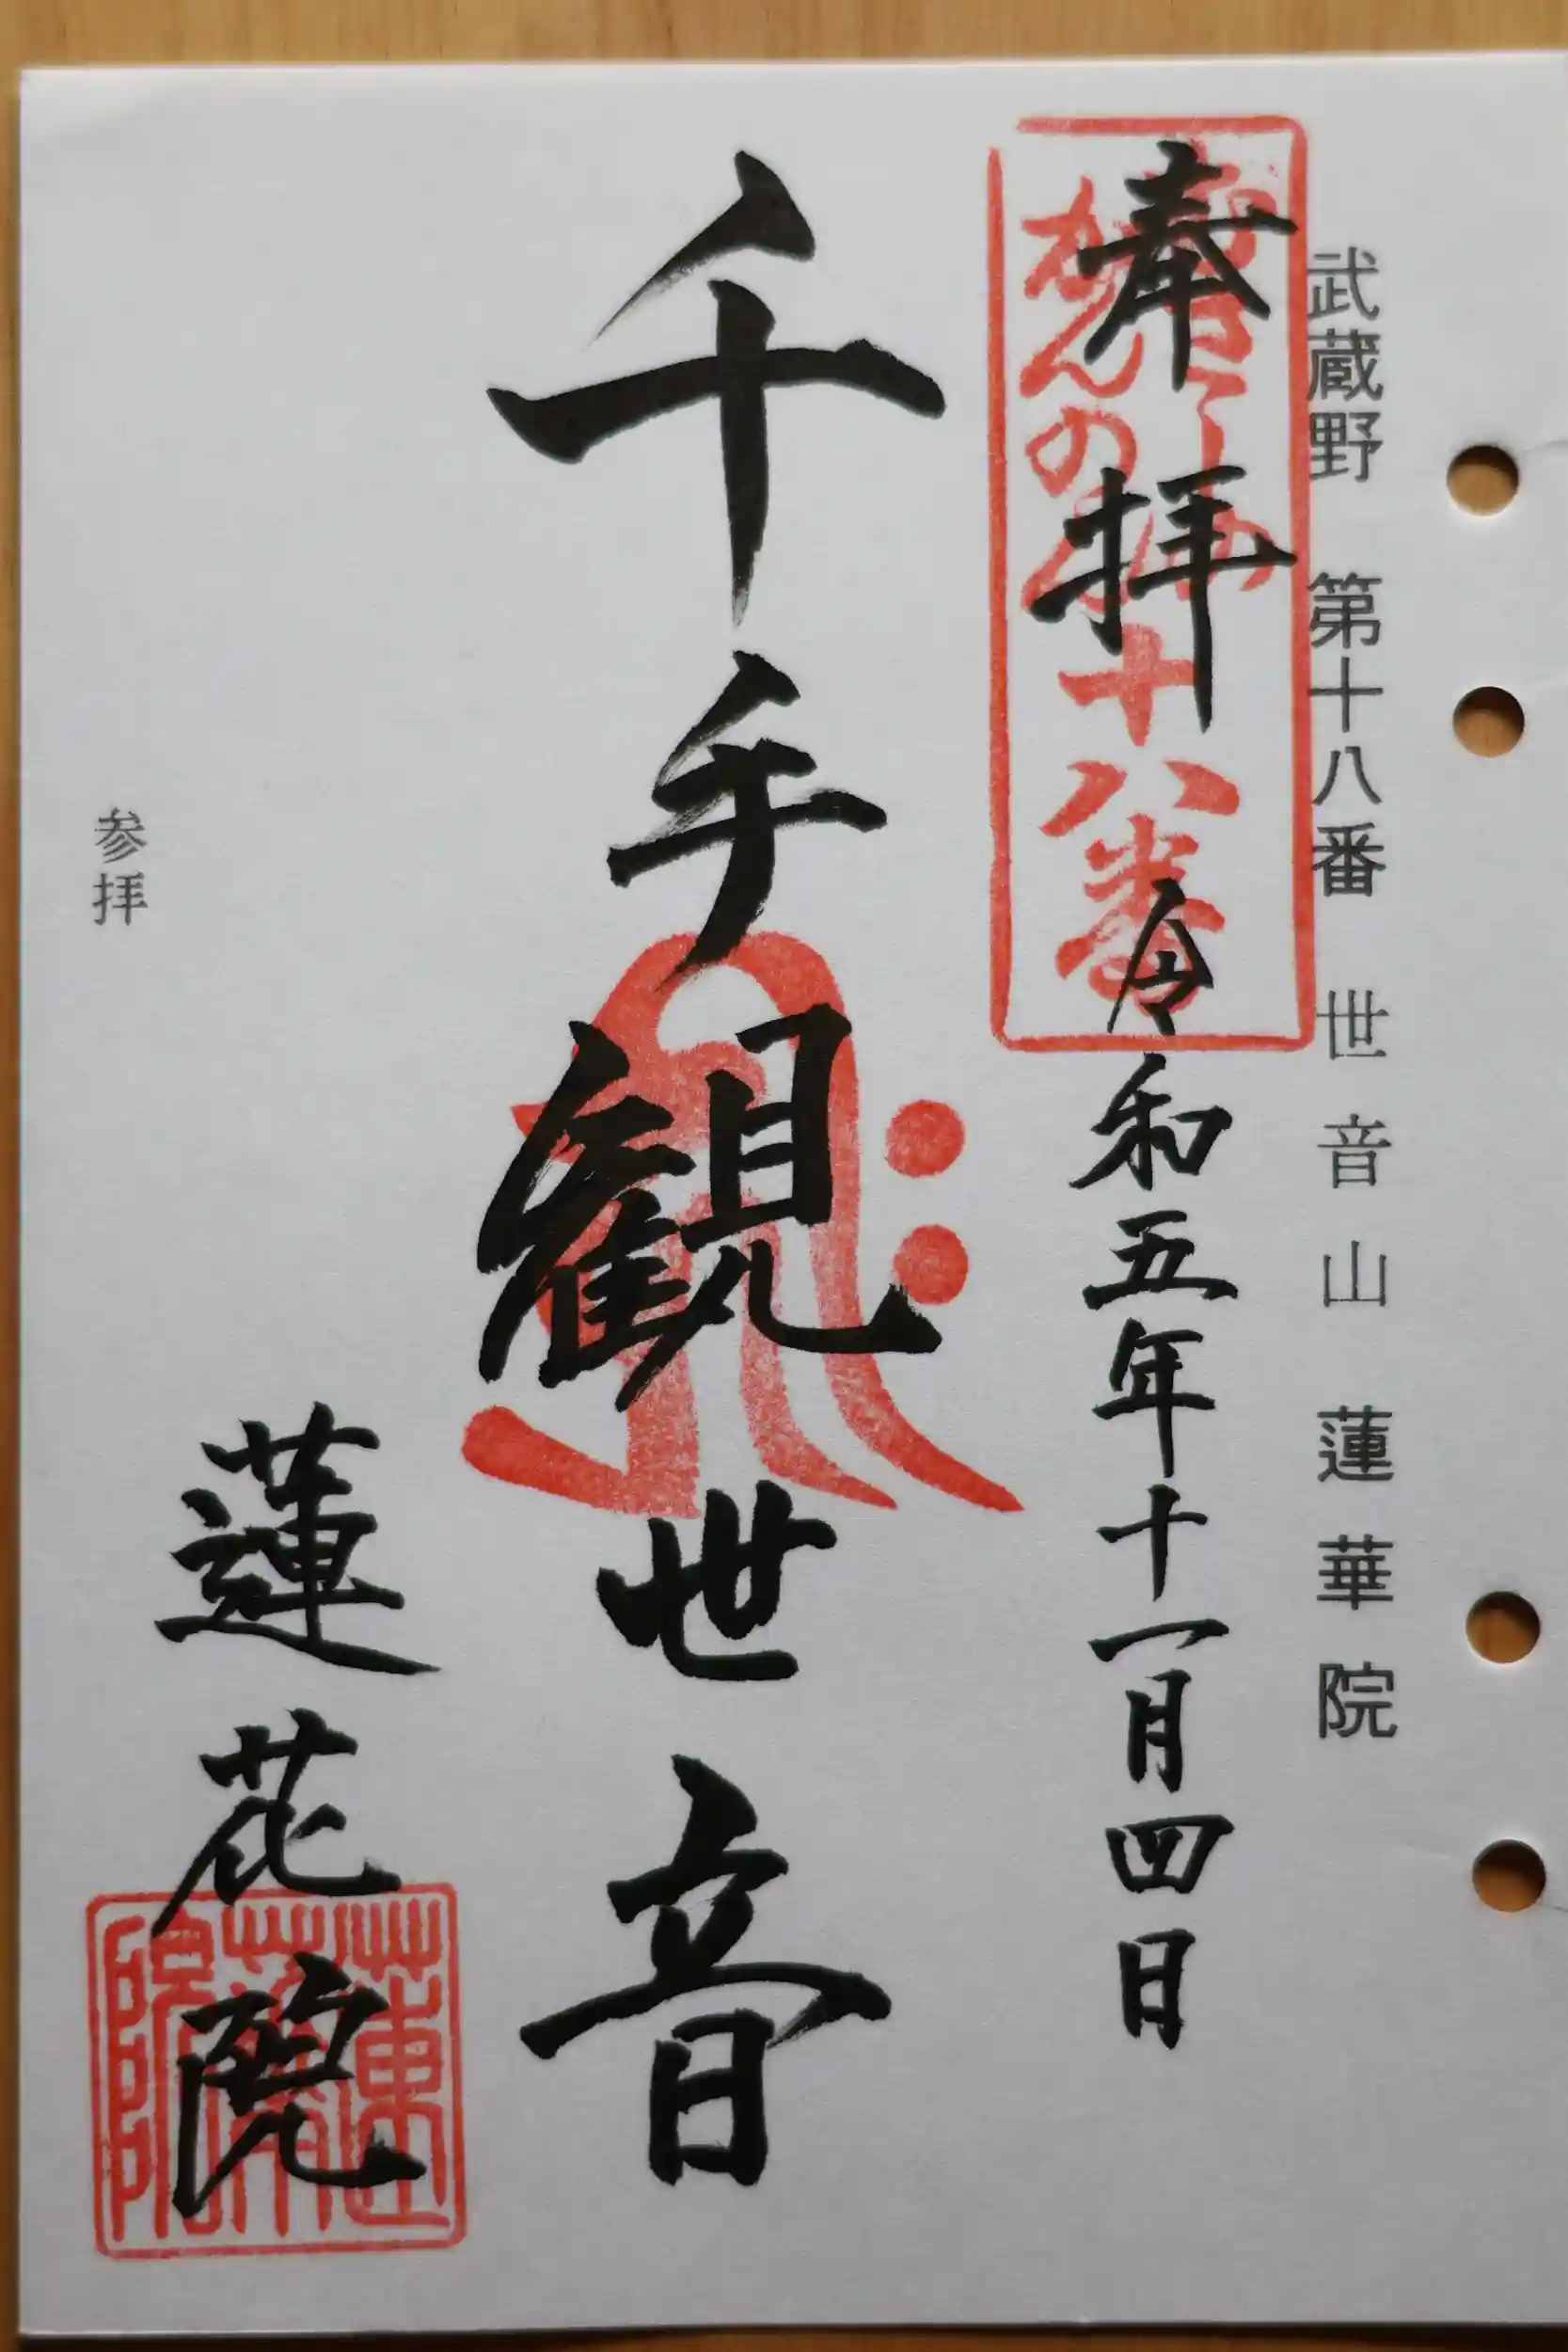 武蔵野 第十八番 世音山 蓮華院
奉拝 令和五年十一月四日
むさしの
かんのん
十八番
千手観世音
蓮花院
蓮華院
参拝